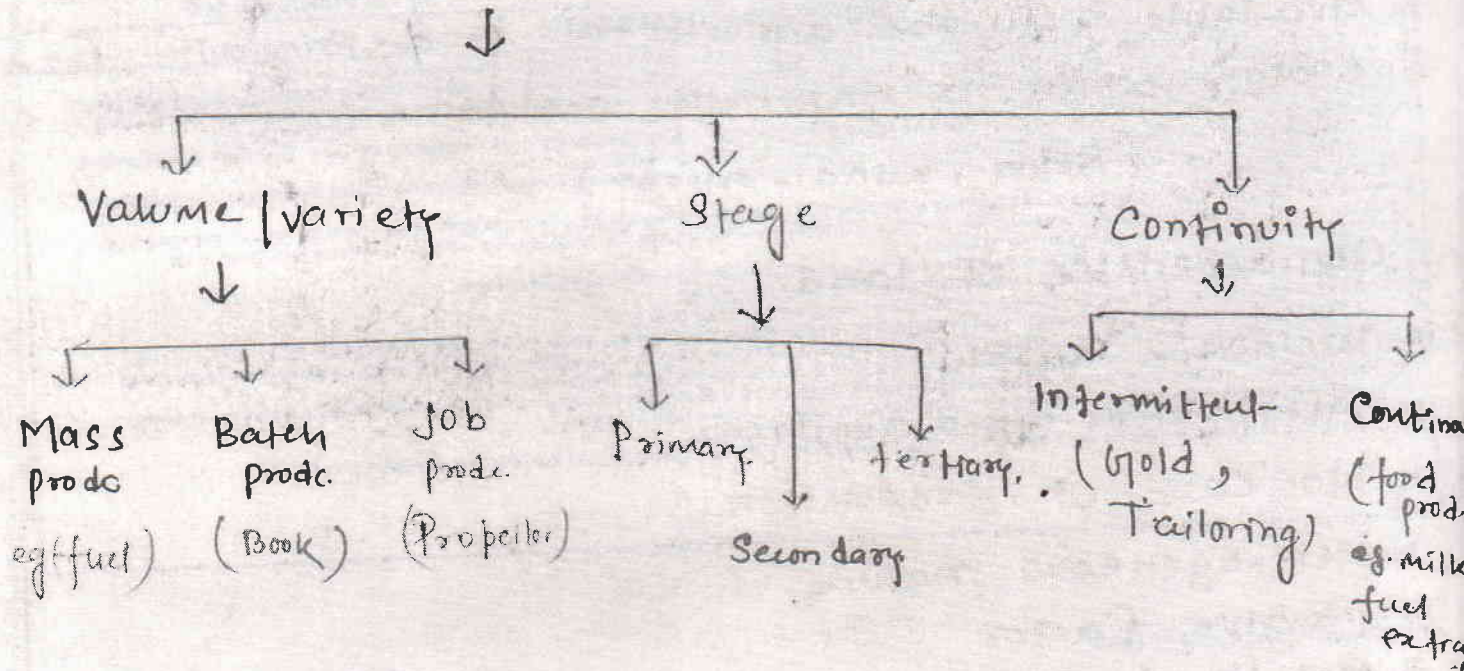 Valume | variety
Stage
Continuity
Mass
prodc
eg(fuel)
Batch
prodc.
(Book)
Job
prodc.
(Propellor)
Primary.
Secondary
tertiary.
Intermittent
(Gold,
Tailoring)
(food
prod
eg. milk
fuel